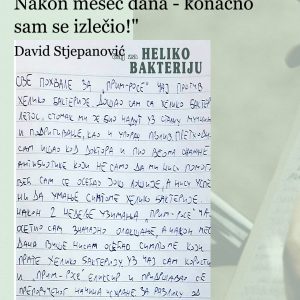 Nakon mesec dana - konačno
sam se izlečio!"
David Stjepanović
čaj za HELIKO
BAKTERIJU
СВЕ ПОХВАЛЕ ЗА „ПРИМ-РОСЕ" ЧАЈ ПРОТИВ
ХЕЛИКО БАКТЕРИЈЕ. ДОШАО САМ СА ХЕЛИКО БАКТЕР
ЛЕТОС, СТОМАК МИ ЈЕ БИО НАДУТ УЗ СТАЛНУ МУЧНИН
И ПОДРИГИВАЊЕ, КАО И УПОРАН ПРОЛИВ. ПРЕТХОДН
САМ ИШАО КОД ДОКТОРА И ПИО ВЕОМА СНАЖНЕ
АНТИБИОТИКЕ КОЈИ НЕ САМО ДА МИ НИСУ ПОМОГ
ВЕЋ САМ СЕ ОСЕЋАО ЈОШ ЛОШИЈЕ, А НИСУ УСПЕ
НИ ДА УМАЊЕ СИМТОМЕ ХЕЛИКО БАКТЕРИЈЕ.
НАКОН 2 НЕДЕЉЕ УЗИМАЊА „ПРИМ-РОСЕ" ЧА
ОСЕТИО САМ ЗНАЧАЈНО ОЛАКШАЊЕ, А НАКОН МЕС
ДАНА ВИШЕ НИСАМ ОСЕЋАО СИМПТОМЕ КОЈИ
ПРАТЕ ХЕЛИКО БАКТЕРИЈУ. УЗ ЧАЈ САМ КОРИСТИ
И „ПРИМ-РОСЕ" ЕЛИКСИР И ПРИДРЖАВАО СЕ
ПРЕПОРУЧЕНОГ НАЧИНА ИСХРАНЕ. ЗА РАЗЛИКУ ОД